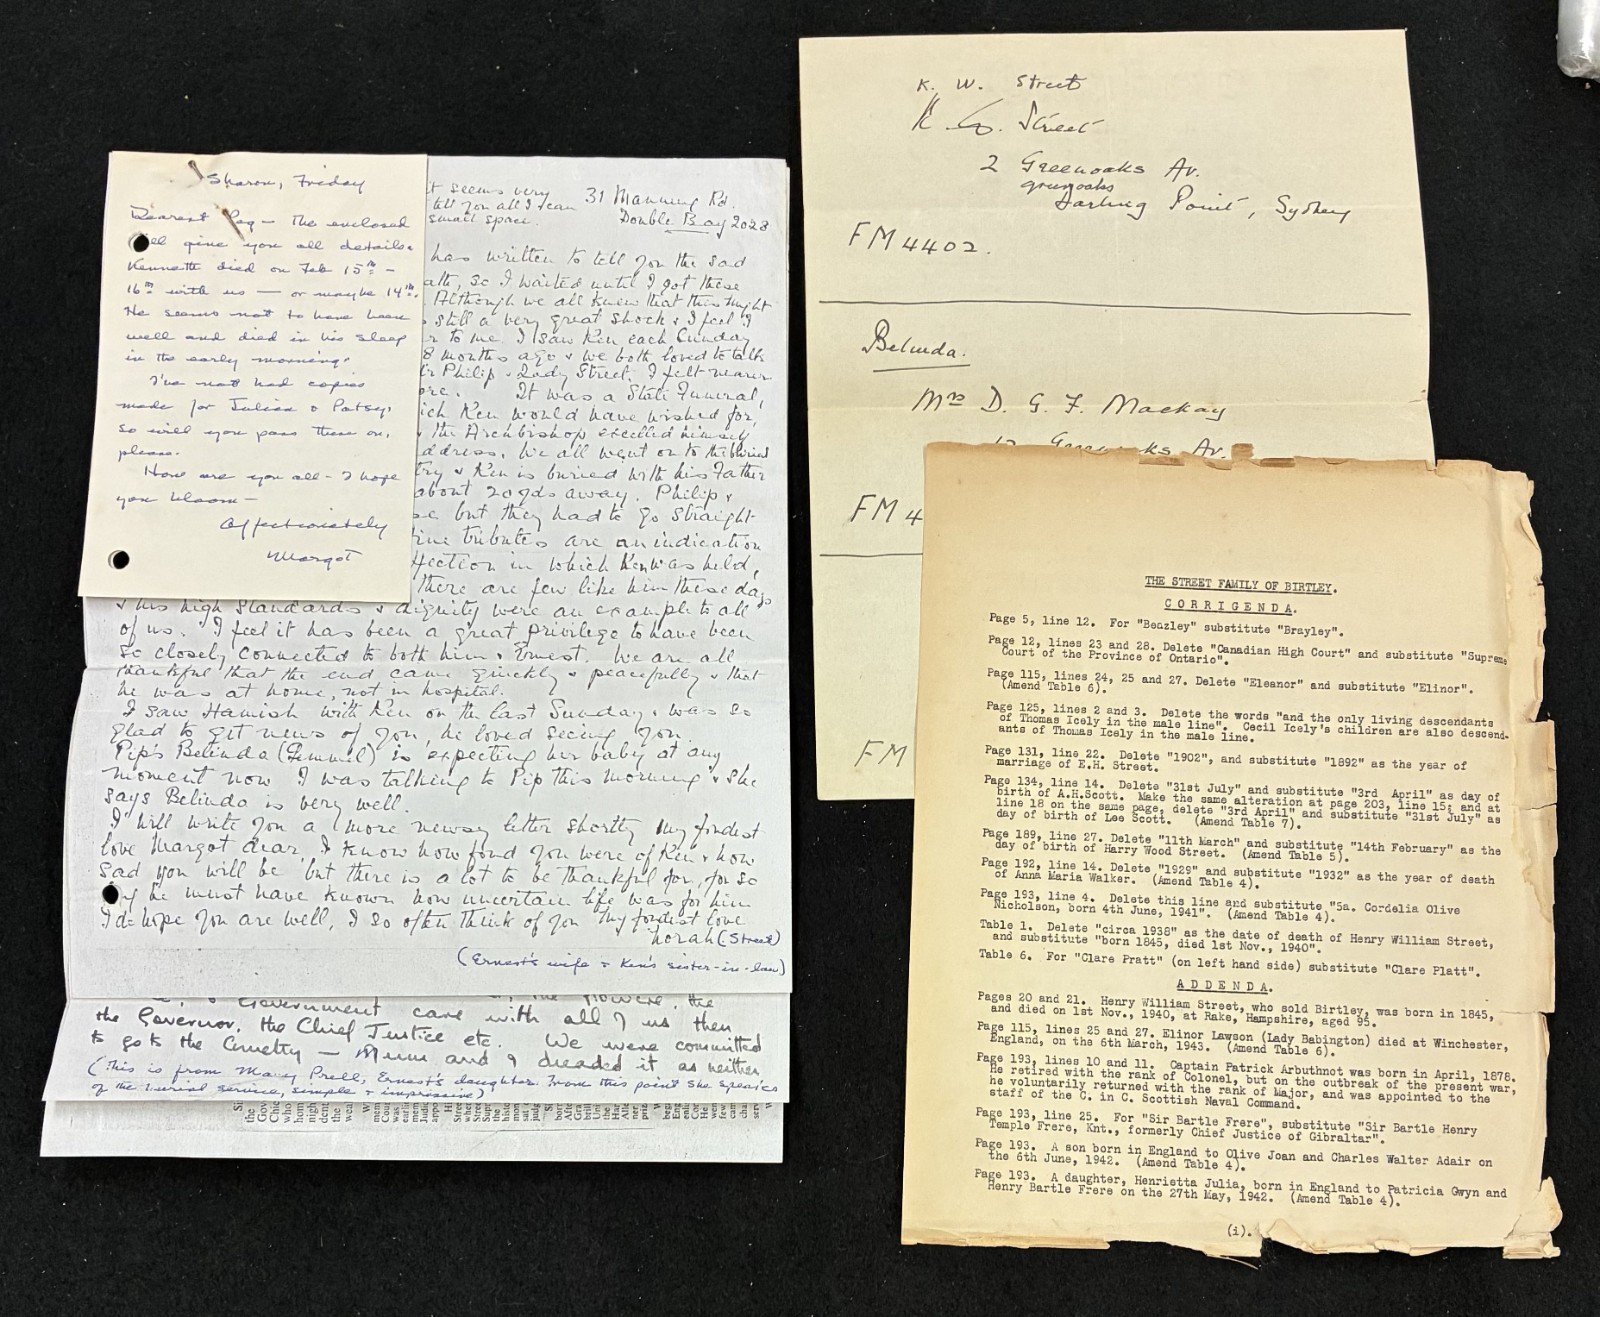 Sharon, Friday
Dearest Peg — The enclosed
will give you all details.
Kenneth died on Feb 15th —
16th with us — or maybe 14th.
He seems not to have been
well and died in his sleep
in the early morning.
I've not had copies
made for Julian & Patsy,
so will you pass these on,
please.
How are you all - I hope
you bloom —
Affectionately
Margot
it seems very
tell you all I can
small space.
31 Manning Rd.
Double Bay 2028
has written to tell you the sad
so I waited until I got these
Although we all knew that this might
still a very great shock & I feel I
to me. I saw Ken each Sunday
8 months ago & we both loved to talk
Philip & Lady Street. I felt nearer
It was a State Funeral,
ich Ken would have wished for,
& the Archbishop excelled himself
address. We all went on to the burial
try & Ken is buried with his Father
about 20 yds away. Philip &
but they had to go straight
tributes are an indication
ffection in which Ken was held,
there are few like him these days
& his high standards & dignity were an example to all
of us. I feel it has been a great privilege to have been
so closely connected to both him & Ernest. We are all
thankful that the end came quickly & peacefully & that
he was at home, not in hospital.
I saw Hamish with Ken on the last Sunday & was so
glad to get news of you, he loved seeing you.
Pip's Belinda (Gemmell) is expecting her baby at any
moment now I was talking to Pip this morning & she
says Belinda is very well.
I will write you a more newsy letter shortly My fondest
love Margot dear, I know how fond you were of Ken & how
sad you will be but there is a lot to be thankful for, for so
he must have known how uncertain life was for him
I do hope you are well, I so often think of you My fondest love
Norah (Street)
(Ernest's wife & Ken's sister-in-law)
Government care with all of us then
the Governor, the Chief Justice etc. We were committed
to go to the Cemetery — Mum and I dreaded it as neither
(This is from Mary Prell, Ernest's daughter. From this point she speaks
of the burial service, simple & impressive)
K. W. Street
K. W. Street
2 Greenoaks Av.
greenoaks
Darling Point, Sydney
FM 4402.
Belinda.
Mrs D. G. F. Mackay
Greenoaks Av.
FM 4
FM
THE STREET FAMILY OF BIRTLEY.
CORRIGENDA.
Page 5, line 12. For "Beazley" substitute "Brayley".
Page 12, lines 23 and 28. Delete "Canadian High Court" and substitute "Supreme
Court of the Province of Ontario".
Page 115, lines 24, 25 and 27. Delete "Eleanor" and substitute "Elinor".
(Amend Table 6).
Page 125, lines 2 and 3. Delete the words "and the only living descendants
of Thomas Icely in the male line". Cecil Icely's children are also descend-
ants of Thomas Icely in the male line.
Page 131, line 22. Delete "1902", and substitute "1892" as the year of
marriage of E.H. Street.
Page 134, line 14. Delete "31st July" and substitute "3rd April" as day of
birth of A.H.Scott. Make the same alteration at page 203, line 15; and at
line 18 on the same page, delete "3rd April" and substitute "31st July" as
day of birth of Lee Scott. (Amend Table 7).
Page 189, line 27. Delete "11th March" and substitute "14th February" as the
day of birth of Harry Wood Street. (Amend Table 5).
Page 192, line 14. Delete "1929" and substitute "1932" as the year of death
of Anna Maria Walker. (Amend Table 4).
Page 193, line 4. Delete this line and substitute "5a. Cordelia Olive
Nicholson, born 4th June, 1941". (Amend Table 4).
Table 1. Delete "circa 1938" as the date of death of Henry William Street,
and substitute "born 1845, died 1st Nov., 1940".
Table 6. For "Clare Pratt" (on left hand side) substitute "Clare Platt".
ADDENDA.
Pages 20 and 21. Henry William Street, who sold Birtley, was born in 1845,
and died on 1st Nov., 1940, at Rake, Hampshire, aged 95.
Page 115, lines 25 and 27. Elinor Lawson (Lady Babington) died at Winchester,
England, on the 6th March, 1943. (Amend Table 6).
Page 193, lines 10 and 11. Captain Patrick Arbuthnot was born in April, 1878.
He retired with the rank of Colonel, but on the outbreak of the present war,
he voluntarily returned with the rank of Major, and was appointed to the
staff of the C. in C. Scottish Naval Command.
Page 193, line 25. For "Sir Bartle Frere", substitute "Sir Bartle Henry
Temple Frere, Knt., formerly Chief Justice of Gibraltar".
Page 193. A son born in England to Olive Joan and Charles Walter Adair on
the 6th June, 1942. (Amend Table 4).
Page 193. A daughter, Henrietta Julia, born in England to Patricia Gwyn and
Henry Bartle Frere on the 27th May, 1942. (Amend Table 4).
(i).